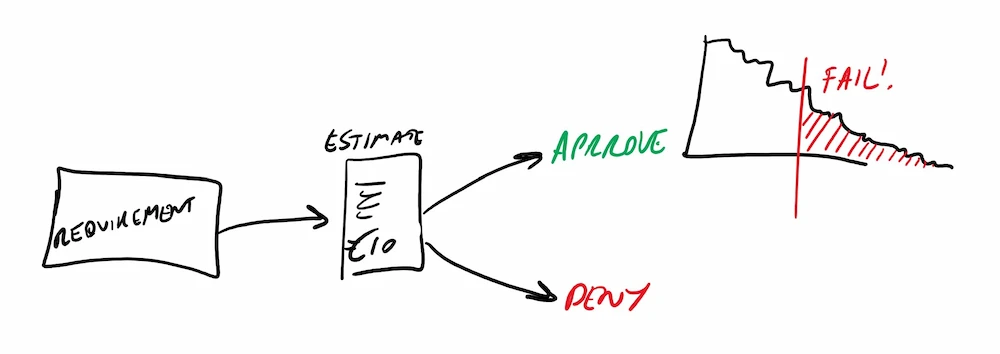 REQUIREMENT
ESTIMATE
£10
APRROVE
DENY
FAIL!